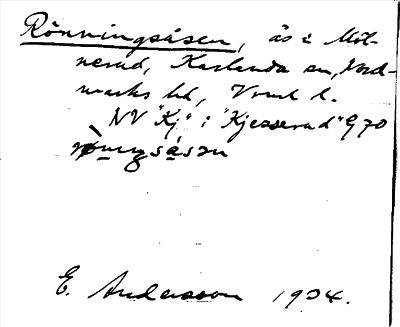 Rönningsåsen, ås i Möt-
nerud, Karlanda sn, Nord-
marks hd, Vrml l.
NV "Kj" i "Kjesserud" G70

E. Andersson 1934.